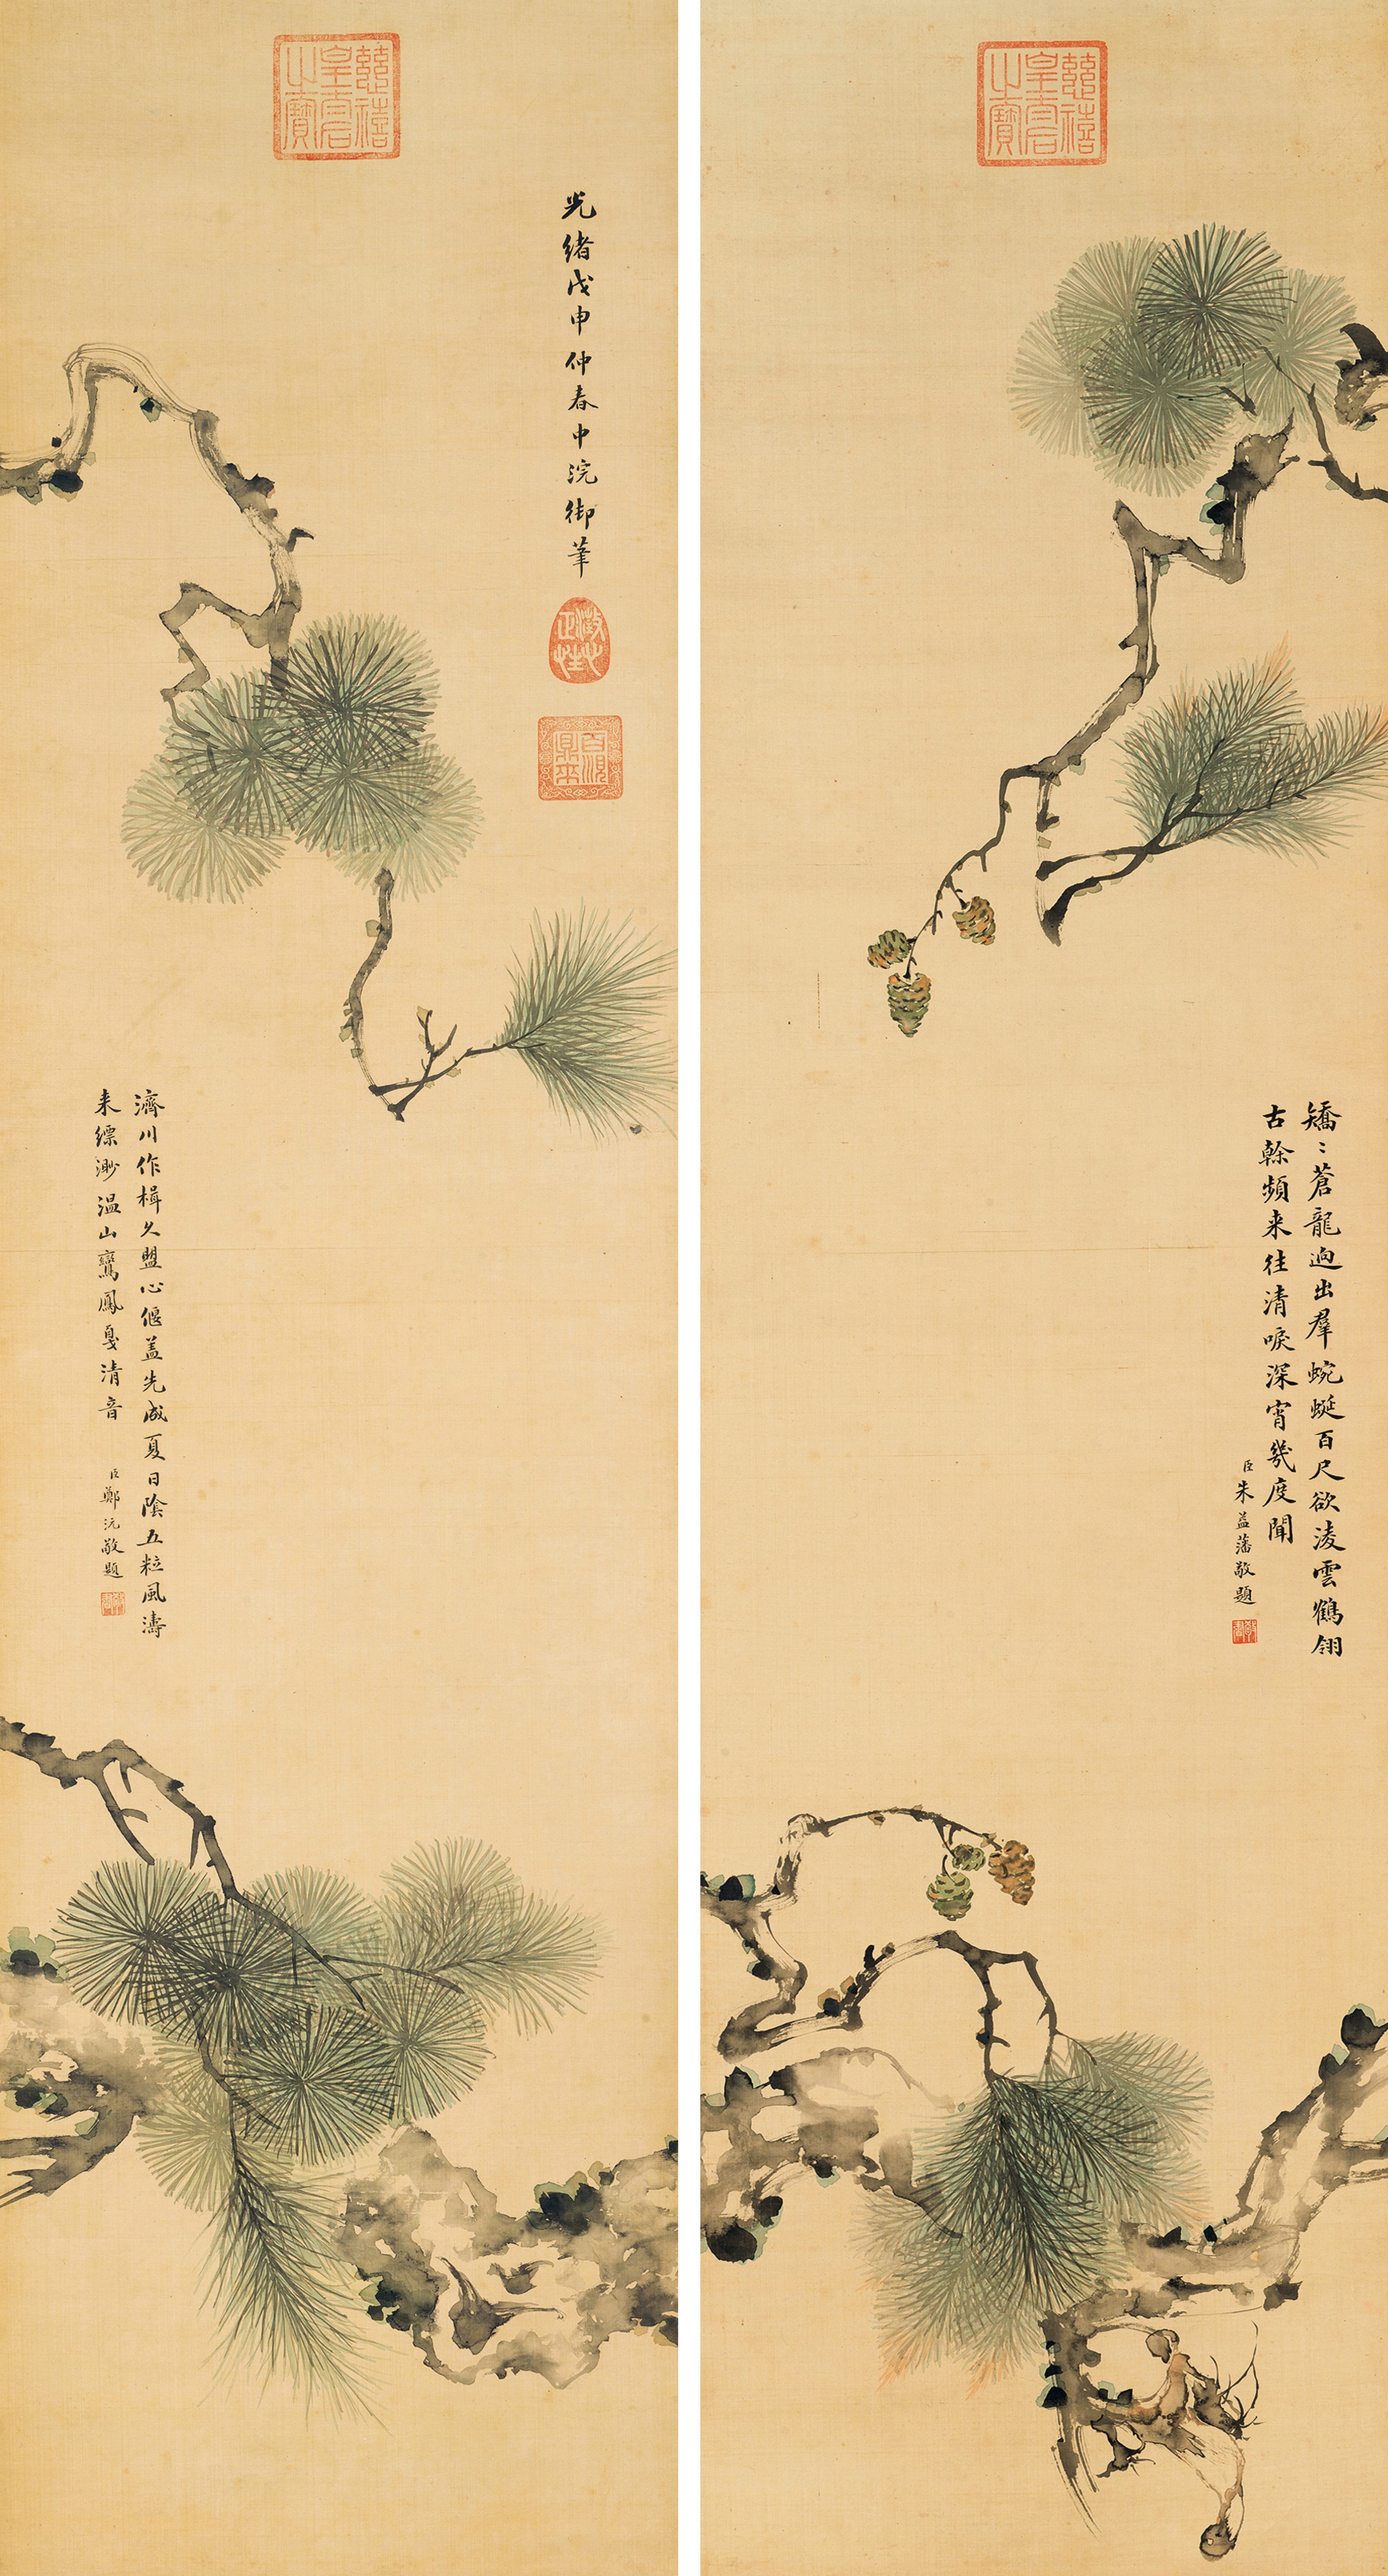 慈禧
皇后
之寶
矯〻蒼龍迥出羣蜿蜒百尺欲淩雲鶴翎
古榦頻来往清唳深宵幾度聞
臣朱益藩敬題
慈禧
皇后
之寶
光緒戊申仲春中浣御筆
澂心
正性
濟川作楫久盟心偃盖先成夏日陰五粒風濤
来縹渺温山鸞鳳戛清音
臣鄭沅敬題